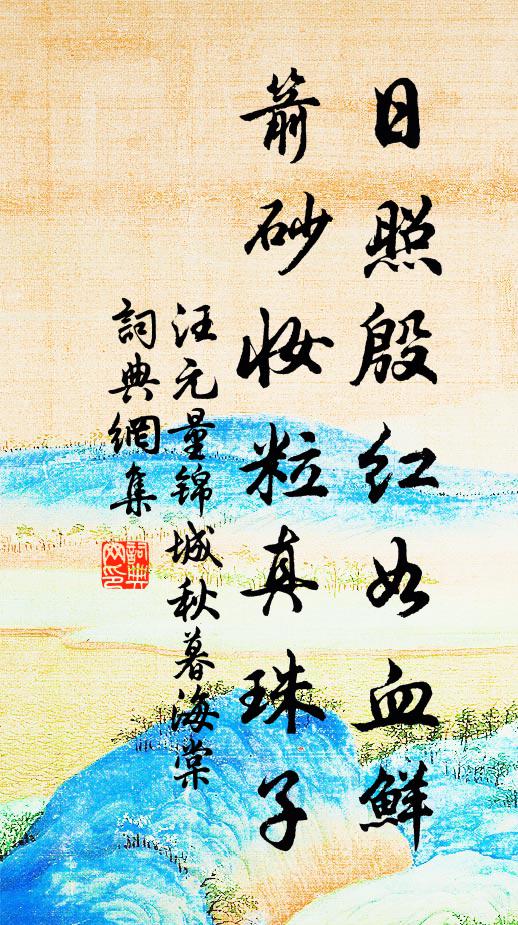 日照殷红如血鲜
箭砂妆粒真珠子
汪元量锦城秋暮海棠
詞典網集
詞典网印